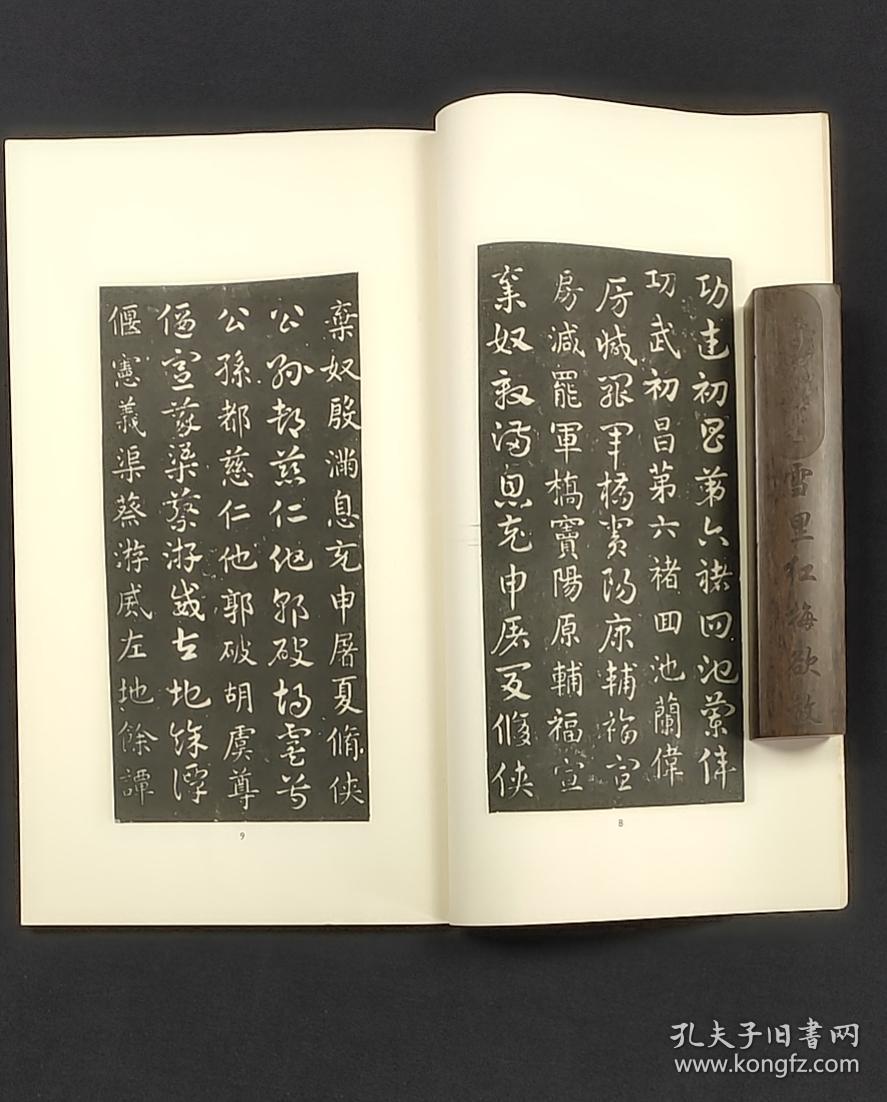 功武初昌第六褚回池蘭偉
功武初昌第六褚回池蘭偉
房減罷軍橋竇陽原輔福宣
房減罷軍橋竇陽原輔福宣
棄奴殷滿息充申屠夏脩俠
8
棄奴殷滿息充申屠夏脩俠
公孫都慈仁他郭破胡虞尊
公孫都慈仁他郭破胡虞尊
偃憲義渠蔡游威左地餘譚
偃憲義渠蔡游威左地餘譚
9
雪里红梅欲
孔夫子旧書网
www.kongfz.com